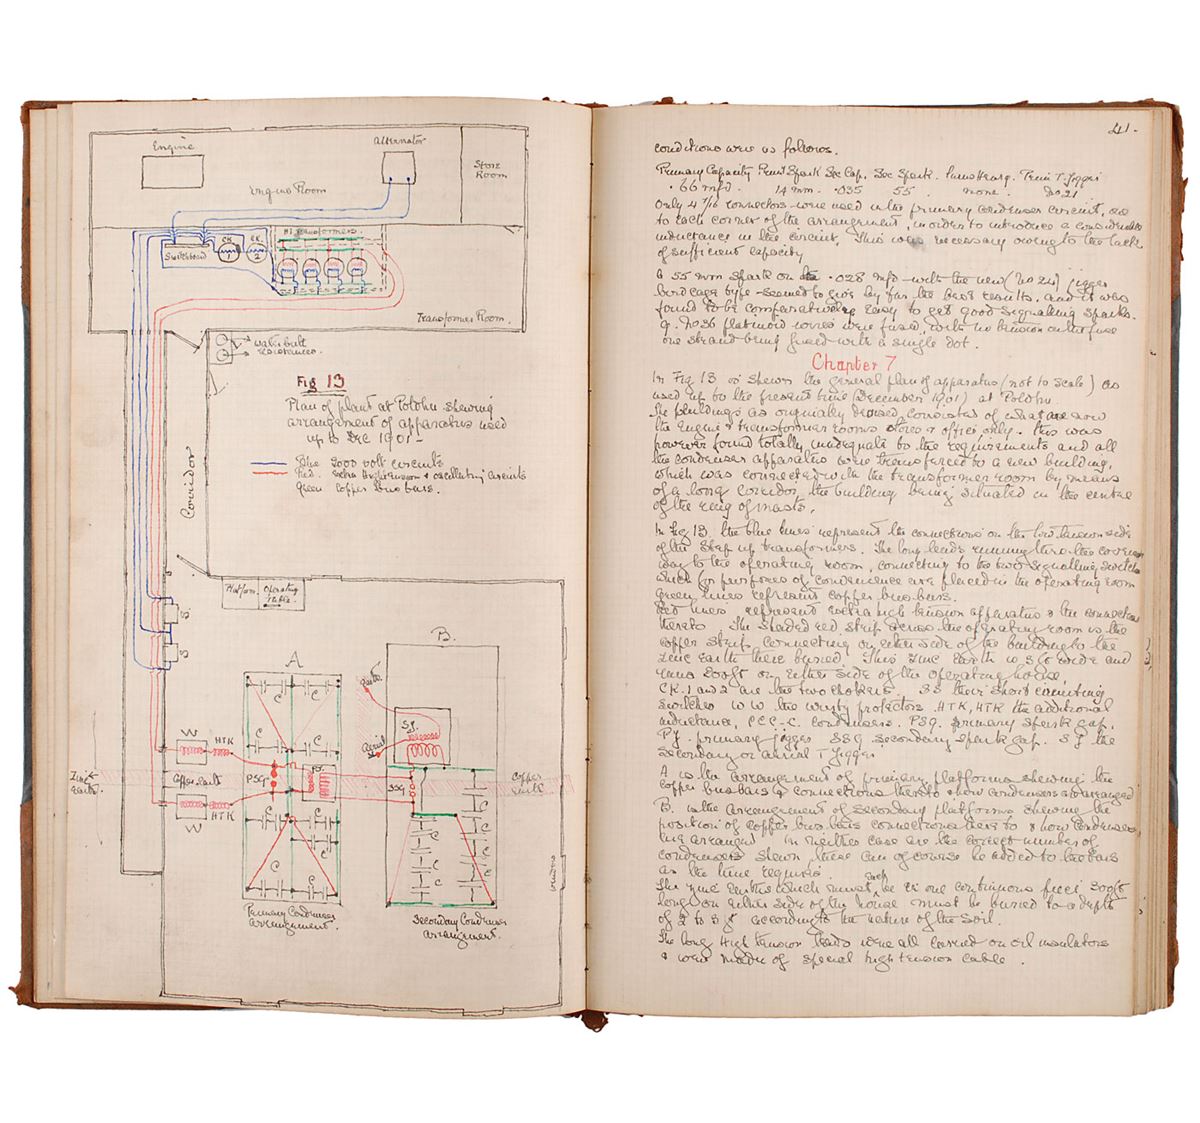 Engine
Alternator
Engine Room
Store
Room
Switchboard
CK
1
CK
2
Hi Transformers
Transformer Room.
Water butt
resistances.
Fig 13
Plan of plant at Poldhu shewing
arrangement of apparatus used
up to Dec 1901-
Blue 2000 volt circuits
Red. extra High tension & oscillating circuits
Green copper bus bars.
Corridor
Platform. Operating
Table.
S.
S.
A
B.
Earth
Aerial
SJ.
C
C
C
C
W
HTK
Zinc
Earth.
Copper earth
PSG
PJ.
SSG
Copper
Earth
HTK
W
C
C
C
C
C
C
C
C
C
windows
Primary Condenser
arrangement.
Secondary Condenser
arrangement.
41.
conditions were as follows.
Primary Capacity Prim Spark Sec Cap. Sec Spark. T Jigger
.66 mfd. 14 mm. .035 55. none. No 21
Only 4 7/16 connectors were used in the primary condenser circuit, one
to each corner of the arrangement, in order to introduce a considerable
inductance in the circuit. This was necessary owing to the lack
of sufficient capacity
A 55 mm spark on .028 mfd with the new (No 24) jigger
bird cage type seemed to give by far the best results, and it was
found to be comparatively easy to get good signalling sparks.
9. No 36 platinoid wires were fused, with no tension on the fuse
one strand being fused with a single dot.
Chapter 7
In Fig 13 is shewn the general plan of apparatus (not to scale) as
used up to the present time (December 1901) at Poldhu.
The buildings as originally devised, consisted of what are now
the Engine & transformer rooms stores & office only. This was
however found totally inadequate to the requirements and all
the condenser apparatus were transferred to a new building,
which was connected with the transformer room by means
of a long corridor, the building being situated in the centre
of the ring of masts.
In Fig 13 the blue lines represent the connections on the low tension side
of the step up transformers. The long leads running thro the covered
way to the operating room, connecting to the two signalling switches
which for purposes of convenience are placed in the operating room
Green lines represent copper bus-bars.
Red lines represent extra high tension apparatus & the connections
thereto. The shaded red strip across the operating room is the
copper strip connecting on either side of the building to the
zinc earth there buried. This zinc earth is 3 ft wide and
runs 200ft on either side of the operating house.
CK. 1 and 2 are the two chokers. SS their short circuiting
switches W W the Wurtz protectors. HTK, HTK the additional
inductance, CCC-C. condensers. PSG. primary spark gap.
PJ. primary jigger SSG secondary spark gap. SJ the
Secondary or aerial T Jigger
A is the arrangement of primary platforms shewing the
copper busbars & connections thereto & how condensers are arranged
B. is the arrangement of secondary platforms shewing the
position of copper bus bars connections thereto & how condensers
are arranged. In neither case are the correct number of
condensers shewn, these can of course be added to the bars
as the time requires.
The zinc earths which must, be in one continuous piece 200ft
each
long on either side of the house must be buried to a depth
of 2 to 3 ft according to the nature of the soil.
The long High tension leads were all carried on oil insulators
& were made of special high tension cable.